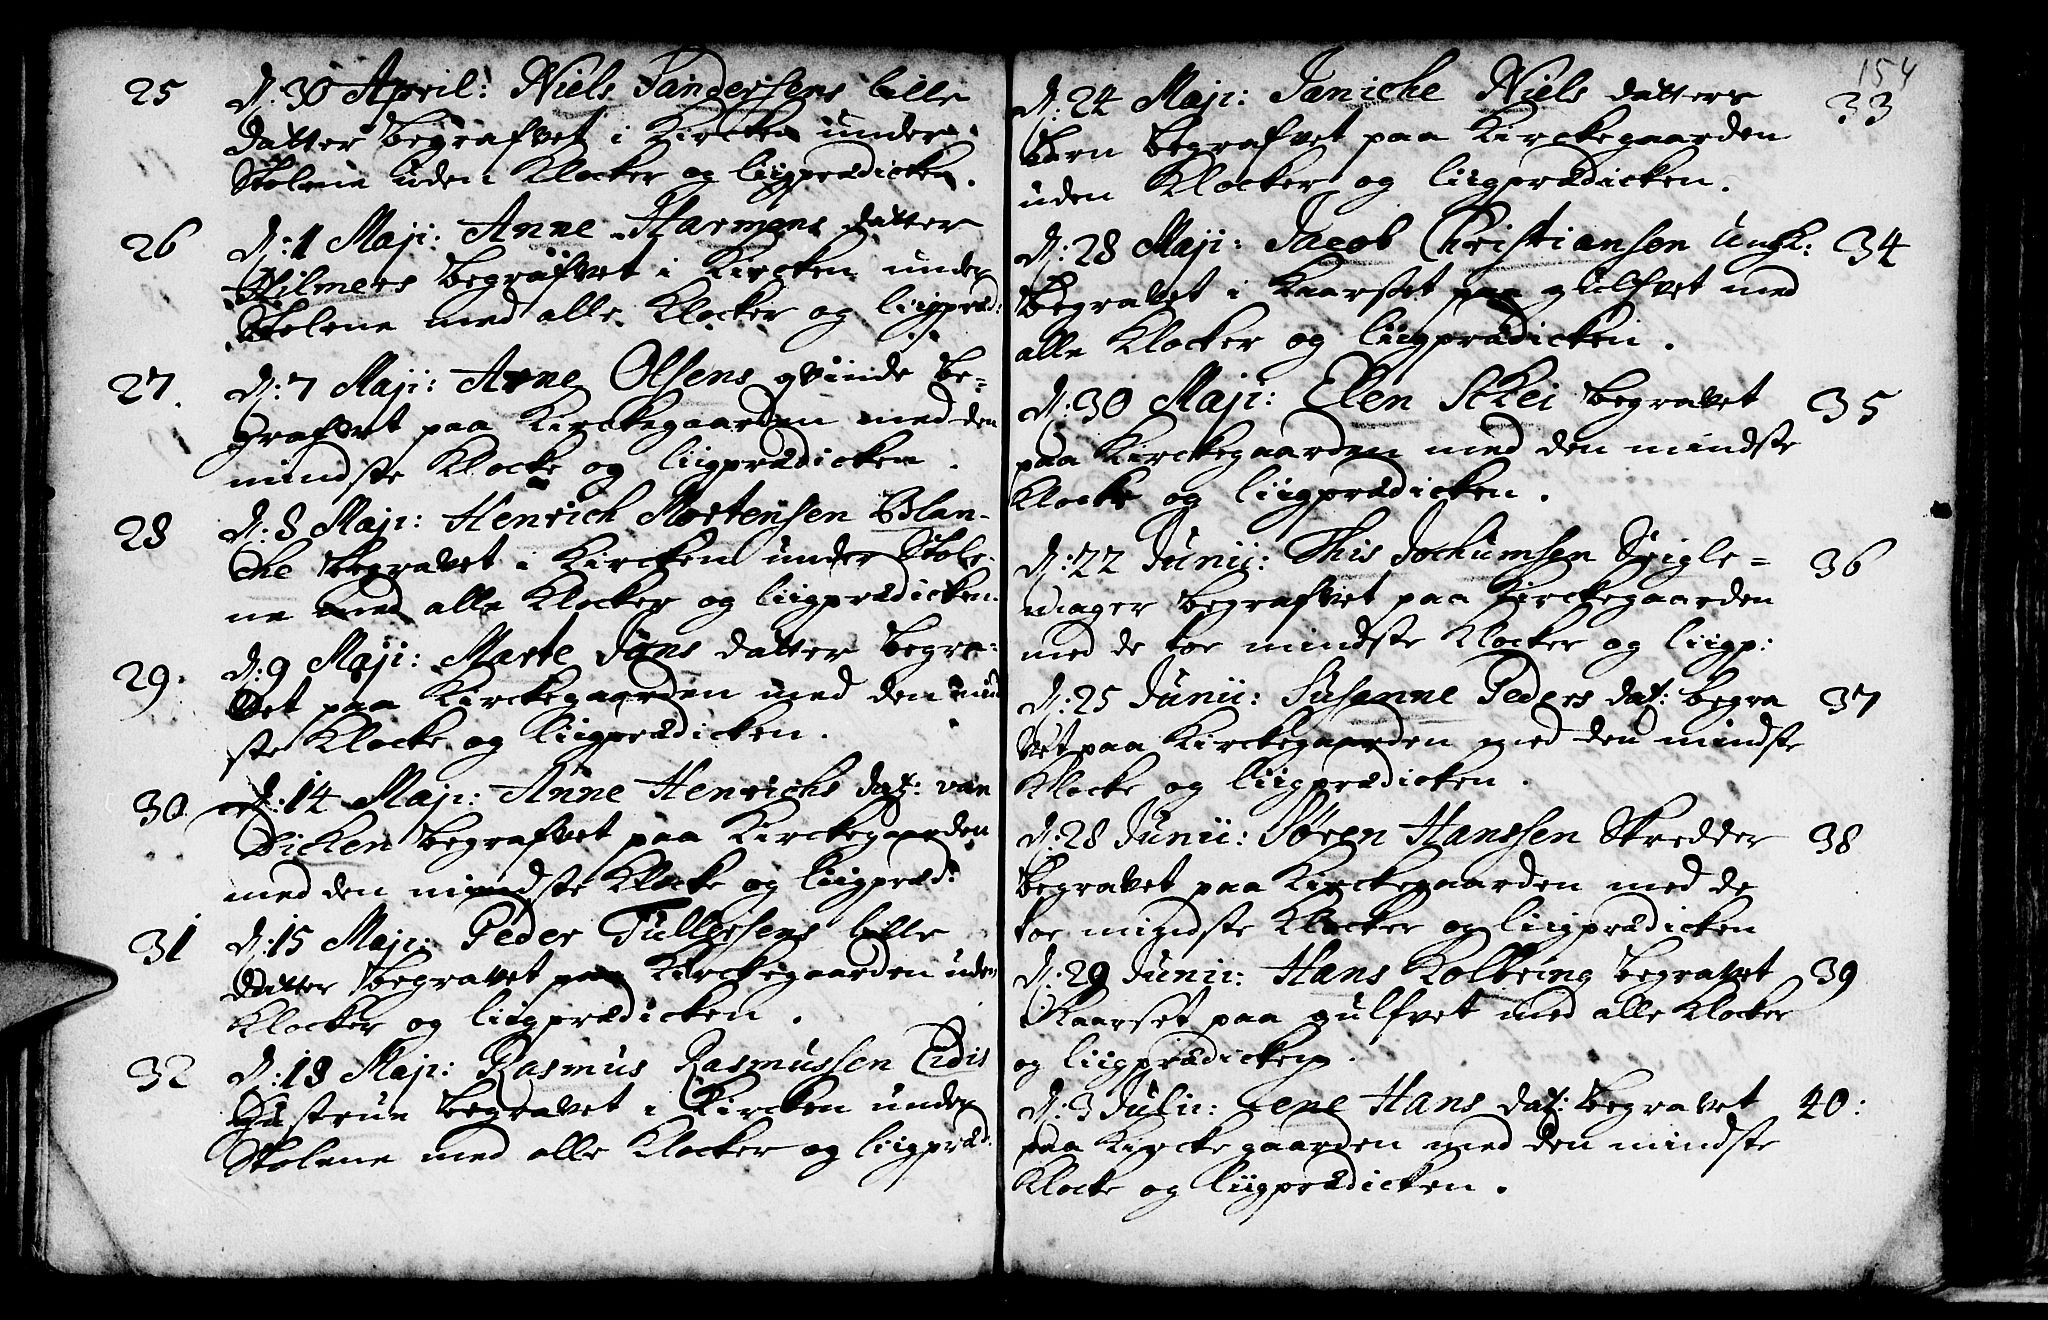 25 d: 30 April: Niels Sandersens lille
datter begrafvet i Kircken under
Stolene uden Klocker og liigprædicken.
26 d: 1 Maji: Anne Harmens datter
Hilmers begrafvet i Kircken under
Stolene med alle Klocker og liigpræd:
27. d: 7 Maji: Arne Olsens qvinde be=
grafvet paa Kirckegaarden med den
mindste Klocke og liigprædicken.
28 d: 8 Maji: Henrich Mortensen Blan-
che begravet i Kircken under Stole-
ne med alle Klocker og liigprædicken.
29. d: 9 Maji: Marte Jøns datter begra-
vet paa Kirckegaarden med den mind
ste Klocke og liigprædicken.
30 d: 14 Maji: Anne Henrichs dat: van
Dicken begrafvet paa Kirckegaarden
med den mindste Klocke og liigpræd:
31 d: 15 Maji: Peder Tullersens lille
datter begravet paa Kirckegaarden uden
Klocker og liigprædicken.
32 d: 18 Maji: Rasmus Rasmussen Eidis
Hustrue begravet i Kircken under
Stolene med alle Klocker og liigpræd:
154
d: 24 Maji: Janiche Niels datters 33
barn begrafvet paa Kirckegaarden
uden Klocker og liigprædicken.
d: 28 Maji: Jacob Christiansen Ungk: 34
begravet i Kaarset paa gulfvet med
alle Klocker og liigprædicken.
d: 30 Maji: Elen Sckei begravet 35
paa Kirckegaarden med den mindste
Klocke og liigprædicken.
d: 22 Junii: This Jochumsen Seigle= 36
mager begrafvet paa Kirckegaarden
med de toe mindste Klocker og liigp:
d: 25 Junii: Susanne Peders dat: begra 37
vet paa Kirckegaarden med den mindste
Klocke og liigprædicken.
d: 28 Junii: Søren Hanssen Skredder 38
begravet paa Kirckegaarden med de
toe mindste Klocker og liigprædicken
d: 29 Junii: Hans Kolbeing begravet 39
Kaarset paa gulfvet med alle Klocker
og liigprædicken.
d: 3 Julii: Lene Hans dat: begravet 40:
paa Kirckegaarden med den mindste
Klocke og liigprædicken.